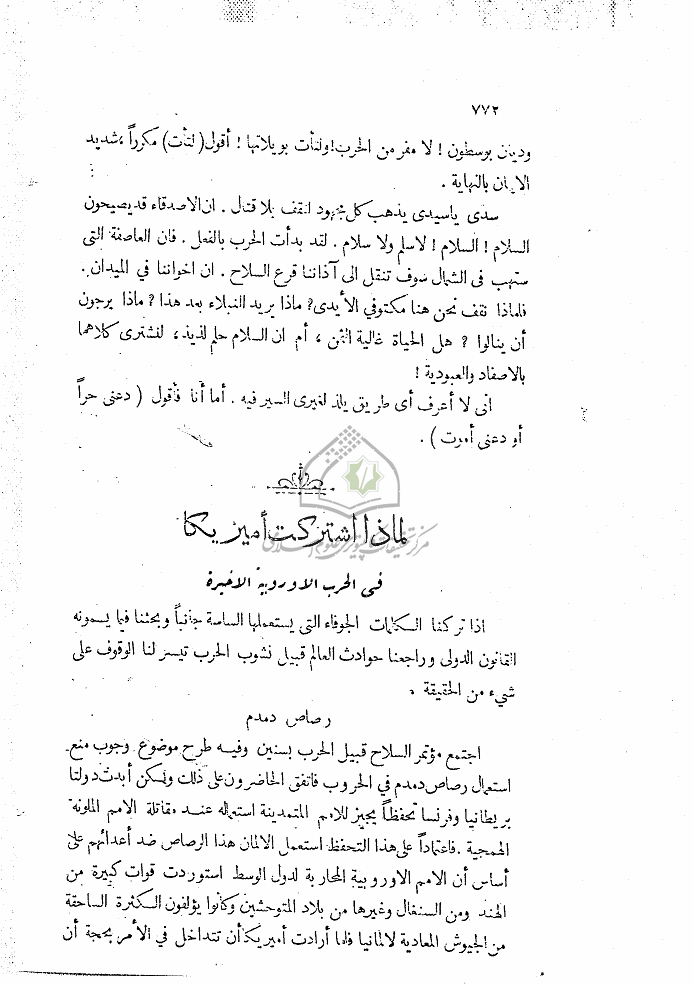 ٧٧٢
وديان بوسطون ! لا مفر من الحرب ! ولتأت بويلاتها ! أقول ( لتأت ) مكرراً ، شديد
الايمان بالنهاية .
سدى ياسيدى يذهب كل مجهود لنقف بلا قتال . ان الاصدقاء قد يصيحون
السلام ! السلام ! لا سلم ولا سلام . لقد بدأت الحرب بالفعل . فان العاصفة التى
ستهب فى الشمال سوف تنقل الى آذاننا قرع السلاح . ان اخواننا في الميدان .
فلماذا نقف نحن هنا مكتوفي الأيدى ? ماذا يريد النبلاء بعد هذا ? ماذا يرجون
أن ينالوا ? هل الحياة غالية الثمن ، أم ان السلام حلم لذيذ ، لنشترى كلاهما
بالاصفاد والعبودية !
انى لا أعرف أى طريق يلذ لغيرى السير فيه . أما أنا فأقول ( دعنى حراً
أو دعنى أموت ) .
مركز تحقيقات كامپيوترى علوم اسلامى
لماذا اشتركت أميريكا
فى الحرب الاوروبية الاخيرة
اذا تركنا الكلمات الجوفاء التى يستعملها الساسة جانباً وبحثنا فيما يسمونه
القانون الدولى وراجعنا حوادث العالم قبيل نشوب الحرب تيسر لنا الوقوف على
شيء من الحقيقة .
رصاص دمدم
اجتمع مؤتمر السلاح قبيل الحرب بسنين وفيه طرح موضوع وجوب منع
استعمال رصاص دمدم في الحروب فاتفق الحاضرون على ذلك ولكن أبدت دولتا
بريطانيا وفرنسا تحفظاً يجيز للامم المتمدينة استعماله عند مقاتلة الامم الملونة
الهمجية . فاعتماداً على هذا التحفظ استعمل الالمان هذا الرصاص ضد أعدائهم على
أساس أن الامم الاوروبية المحاربة لدول الوسط استوردت قوات كبيرة من
الهند ومن السنغال وغيرها من بلاد المتوحشين وكانوا يؤلفون الكثرة الساحقة
من الجيوش المعادية لالمانيا فلما أرادت أميريكا أن تتداخل في الأمر بحجة أن